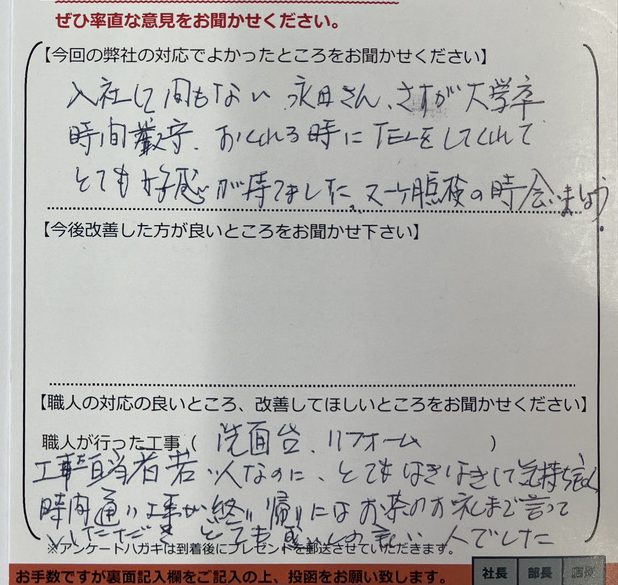 ぜひ率直な意見をお聞かせください。
【今回の弊社の対応でよかったところをお聞かせください】
入社して間もない 永田さん、さすが大学卒
時間厳守、おくれる時にTELをしてくれて
とても好感が持てました。 点検の時会いましょう。
【今後改善した方が良いところをお聞かせ下さい】
【職人の対応の良いところ、改善してほしいところをお聞かせください】
職人が行った工事（ 洗面台、リフォーム ）
工事担当者若い人なのに、とてもはきはきして気持ち良く
時間通り工事が終り帰りにはお茶のお礼まで言って
いただき とても感じの良い 人でした
※アンケートハガキは到着後にプレゼントを郵送させていただきます。
お手数ですが裏面記入欄をご記入の上、投函をお願い致します。
社長 部長 店長